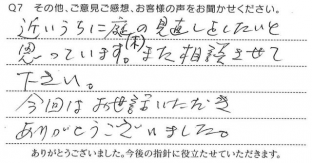 Q7 その他、ご意見ご感想、お客様の声をお聞かせください。
近いうちに庭の見直しをしたいと
(木)
思っています。また相談させて
下さい。
今回はお世話いただき
ありがとうございました。
ありがとうございました。今後の指針に役立たせていただきます。